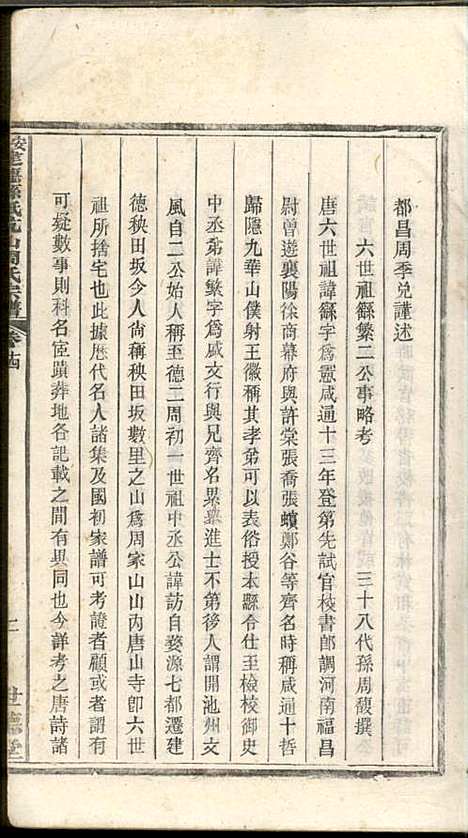 都昌周季兌謹述
六世祖繇繁二公事略考　三十八代孫周馥撰
唐六世祖諱繇字爲憲咸通十三年登第先試官校書郎調河南福昌
尉曾遊襄陽徐商幕府與許棠張喬張蠙鄭谷等齊名時稱咸通十哲
歸隱九華山僕射王徽稱其孝弟可以表俗授本縣令仕至檢校御史
中丞弟諱繁字爲戚文行與兄齊名累舉進士不第後人謂開池州文
風自二公始人稱至德二周初一世祖中丞公諱訪自婺源七都遷建
德秧田坂今人尙稱秧田坂數里之山爲周家山山內唐山寺卽六世
祖所捨宅也此據歷代名人諸集及國初家譜可考證者顧或者謂有
可疑數事則科名宦蹟葬地各記載之間有異同也今詳考之唐詩諸
周氏宗譜
卷十四
二
世德堂